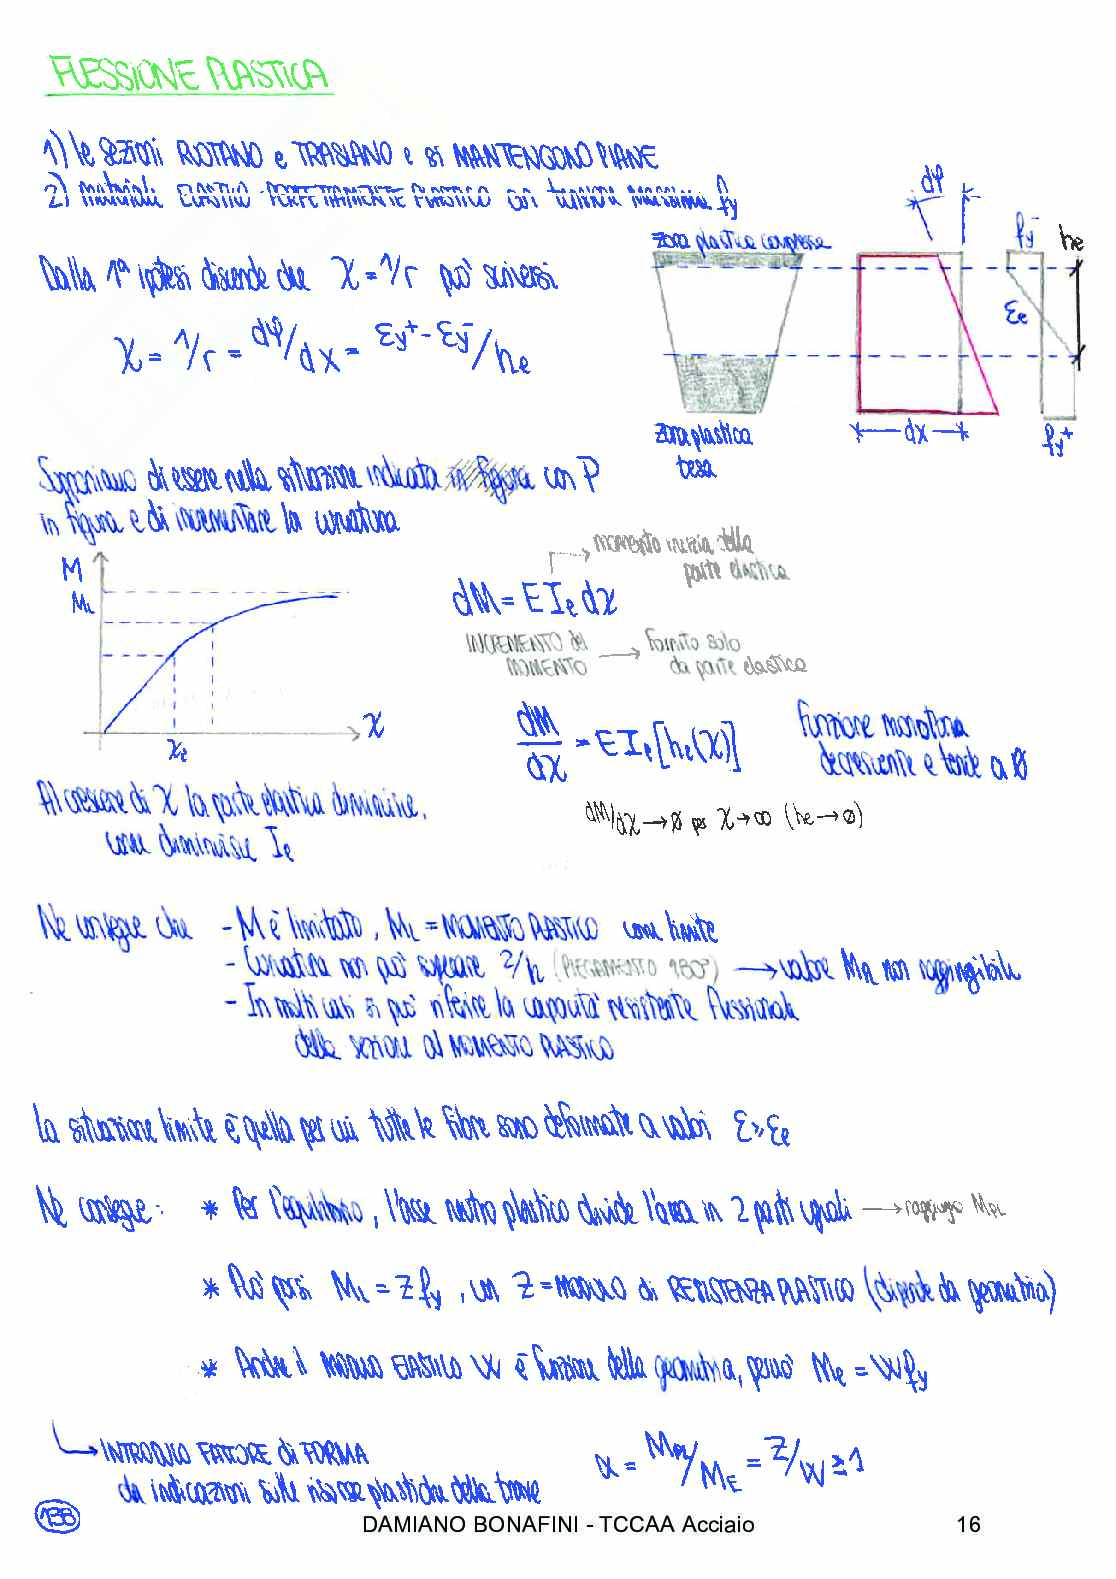 FLESSIONE PLASTICA
1) le sezioni RUOTANO e TRASLANO e si MANTENGONO PIANE
2) materiali ELASTICO-PERFETTAMENTE PLASTICO con tensione massima fy
zona plastica compressa
dφ
fy⁻
he
εe
Dalla 1ª ipotesi discende che χ = 1/r può scriversi
χ = 1/r = dφ/dx = εy⁺ - εy⁻/he
zona plastica
tesa
dx
fy⁺
Supponiamo di essere nella situazione indicata in figura con P
in figura e di incrementare la curvatura
M
ML
χe
χ
momento inerzia della
parte elastica
dM = E Ie dχ
INCREMENTO del
MOMENTO → fornito solo
da parte elastica
dM/dχ = E Ie [he(χ)]
Funzione monotona
decrescente e tende a Ø
dM/dχ → Ø per χ → ∞ (he → Ø)
Al crescere di χ la parte elastica diminuisce,
come diminuisce Ie
Ne consegue che - M è limitato, ML = MOMENTO PLASTICO come limite
- Curvatura non può superare 2/h (PIEGAMENTO 180°) → valore ML non raggiungibile
- In molti casi si può riferire la capacità resistente flessionale
della sezione al MOMENTO PLASTICO
La situazione limite è quella per cui tutte le fibre sono deformate a valori ε ≥ εe
Ne consegue: * Per l'equilibrio, l'asse neutro plastico divide l'area in 2 parti uguali → raggiungo MPL
* Può porsi ML = Z fy, con Z = MODULO di RESISTENZA PLASTICO (dipende da geometria)
* Anche il MODULO ELASTICO W è funzione della geometria, perciò Me = W fy
INTRODUCO FATTORE di FORMA
da indicazioni sulle risorse plastiche della trave
α = MPL/ME = Z/W ≥ 1
138
DAMIANO BONAFINI - TCCAA Acciaio
16